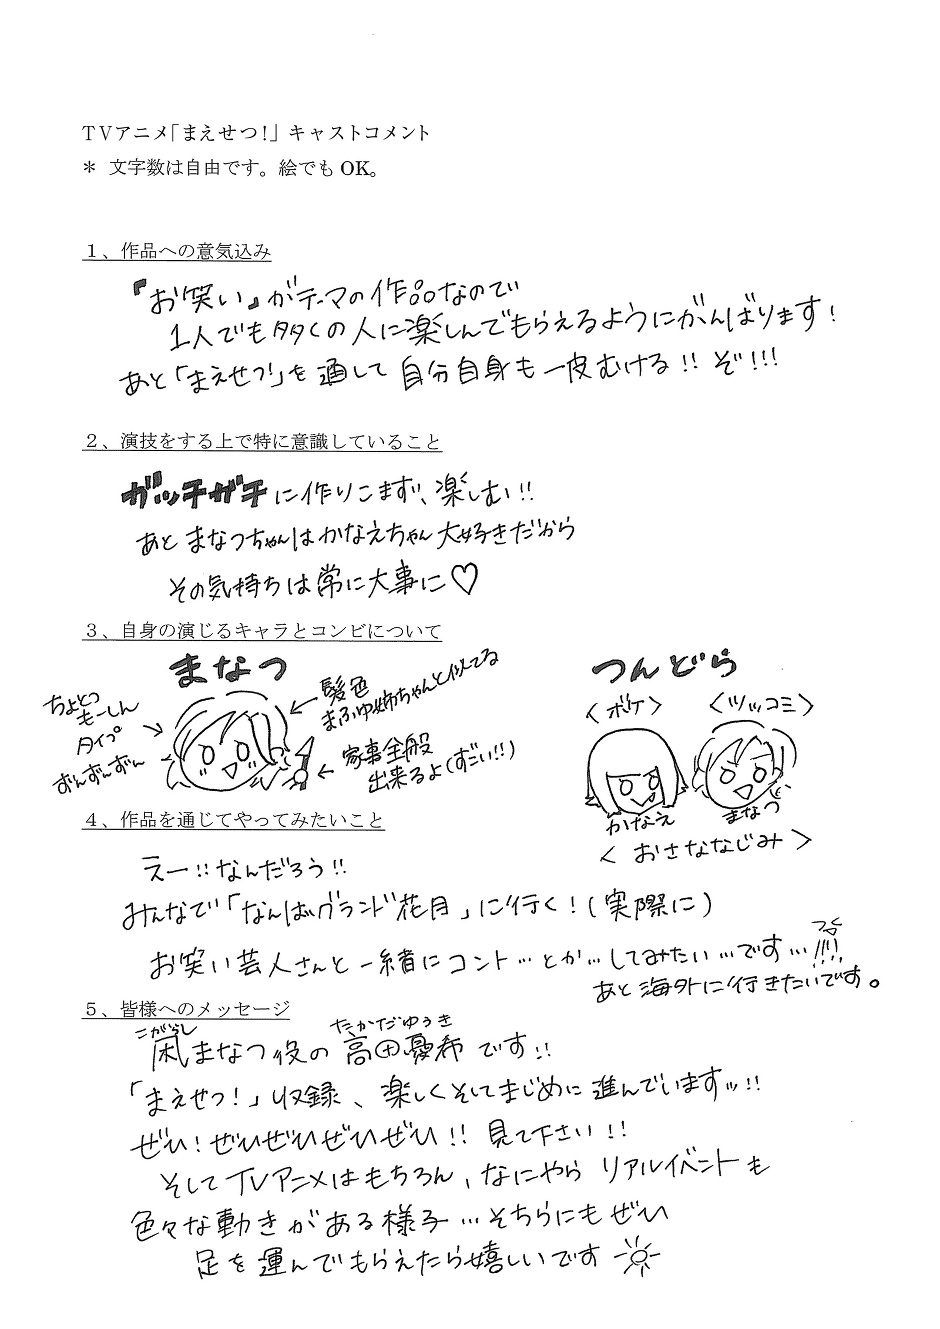 TVアニメ「まえせつ!」キャストコメント
* 文字数は自由です。絵でもOK。
1、作品への意気込み
『お笑い』がテーマの作品なので
1人でも多くの人に楽しんでもらえるようにがんばります!
あと「まえせつ!」を通して自分自身も一皮むける!!ぞ!!!
2、演技をする上で特に意識していること
ガッチガチに作りこまず、楽しむ!!
あとまなつちゃんはかなえちゃん大好きだから
その気持ちは常に大事に♡
3、自身の演じるキャラとコンビについて
まなつ
ちょとつ
もーしん
タイプ
ずんずんずん
髪色
まふゆ姉ちゃんと似てる
家事全般
出来るよ(すごい!!)
つんどら
<ボケ>
<ツッコミ>
かなえ
まなつ
<おさななじみ>
4、作品を通じてやってみたいこと
えー!!なんだろう!!
みんなで「なんばグランド花月」に行く!(実際に)
お笑い芸人さんと一緒にコント…とか…してみたい…です…!!!
あと海外に行きたいです。
5、皆様へのメッセージ
こがらし
たかだゆうき
凩まなつ役の高田憂希です!!
「まえせつ!」収録、楽しくそしてまじめに進んでいますッ!!
ぜひ!ぜひぜひぜひぜひ!!見て下さい!!
そしてTVアニメはもちろん、なにやらリアルイベントも
色々な動きがある様子…そちらにもぜひ
足を運んでもらえたら嬉しいです